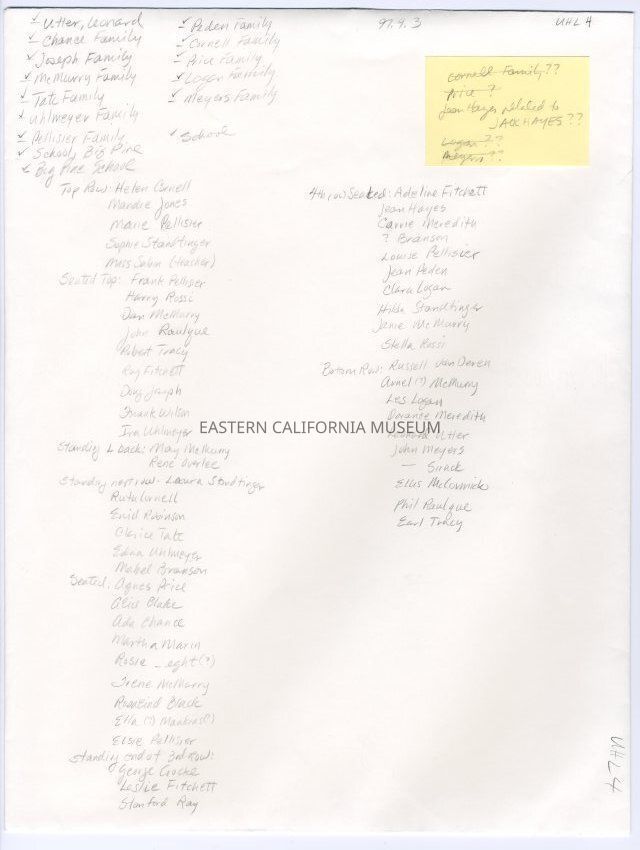 ✓ Utter, Leonard
✓ Chance Family
✓ Joseph Family
✓ McMurry Family
✓ Tate Family
✓ Uhlmeyer Family
✓ Pellisier Family
✓ School, Big Pine
✓ Big Pine School
✓ Peden Family
✓ Cornell Family
✓ Price Family
✓ Logan Family
✓ Meyers Family
✓ School
97.4.3
UHL 4
Cornell Family??
Price ?
Jean Hayes related to
JACK HAYES ??
Logan ??
Meyers ??
Top Row: Helen Cornell
Mandie Jones
Marie Pellisier
Sophie Standtinger
Miss Sabin (teacher)
Seated Top: Frank Pellisier
Harry Rossi
Dan McMurry
John Paulque
Robert Tracy
Ray Fitchett
Doug Joseph
Frank Wilson
Ira Uhlmeyer
Standing L back: May McMurry
Rene
Standing next row - Laura Standtinger
Ruth Cornell
Enid Robinson
Clarice Tate
Edna Uhlmeyer
Mabel Branson
Seated: Agnes Price
Alice Blake
Ada Chance
Martha Marin
Rosie _eght(?)
Irene McMurry
Rosamond Black
Ella (?)
Elsie Pellisier
Standing end of 3rd Row:
George
Leslie Fitchett
Stanford Ray
4th row Seated: Adeline Fitchett
Jean Hayes
Carrie Meredith
? Branson
Louise Pellisier
Jean Peden
Clara Logan
Hilda Standtinger
Janie McMurry
Stella Rossi
Bottom Row: Russell Van Deren
Arnel (?) McMurry
Les Logan
Meredith
Leonard Utter
John Meyers
—
Ellis McCormick
Phil Paulque
Earl Tracy
EASTERN CALIFORNIA MUSEUM
UHL 4